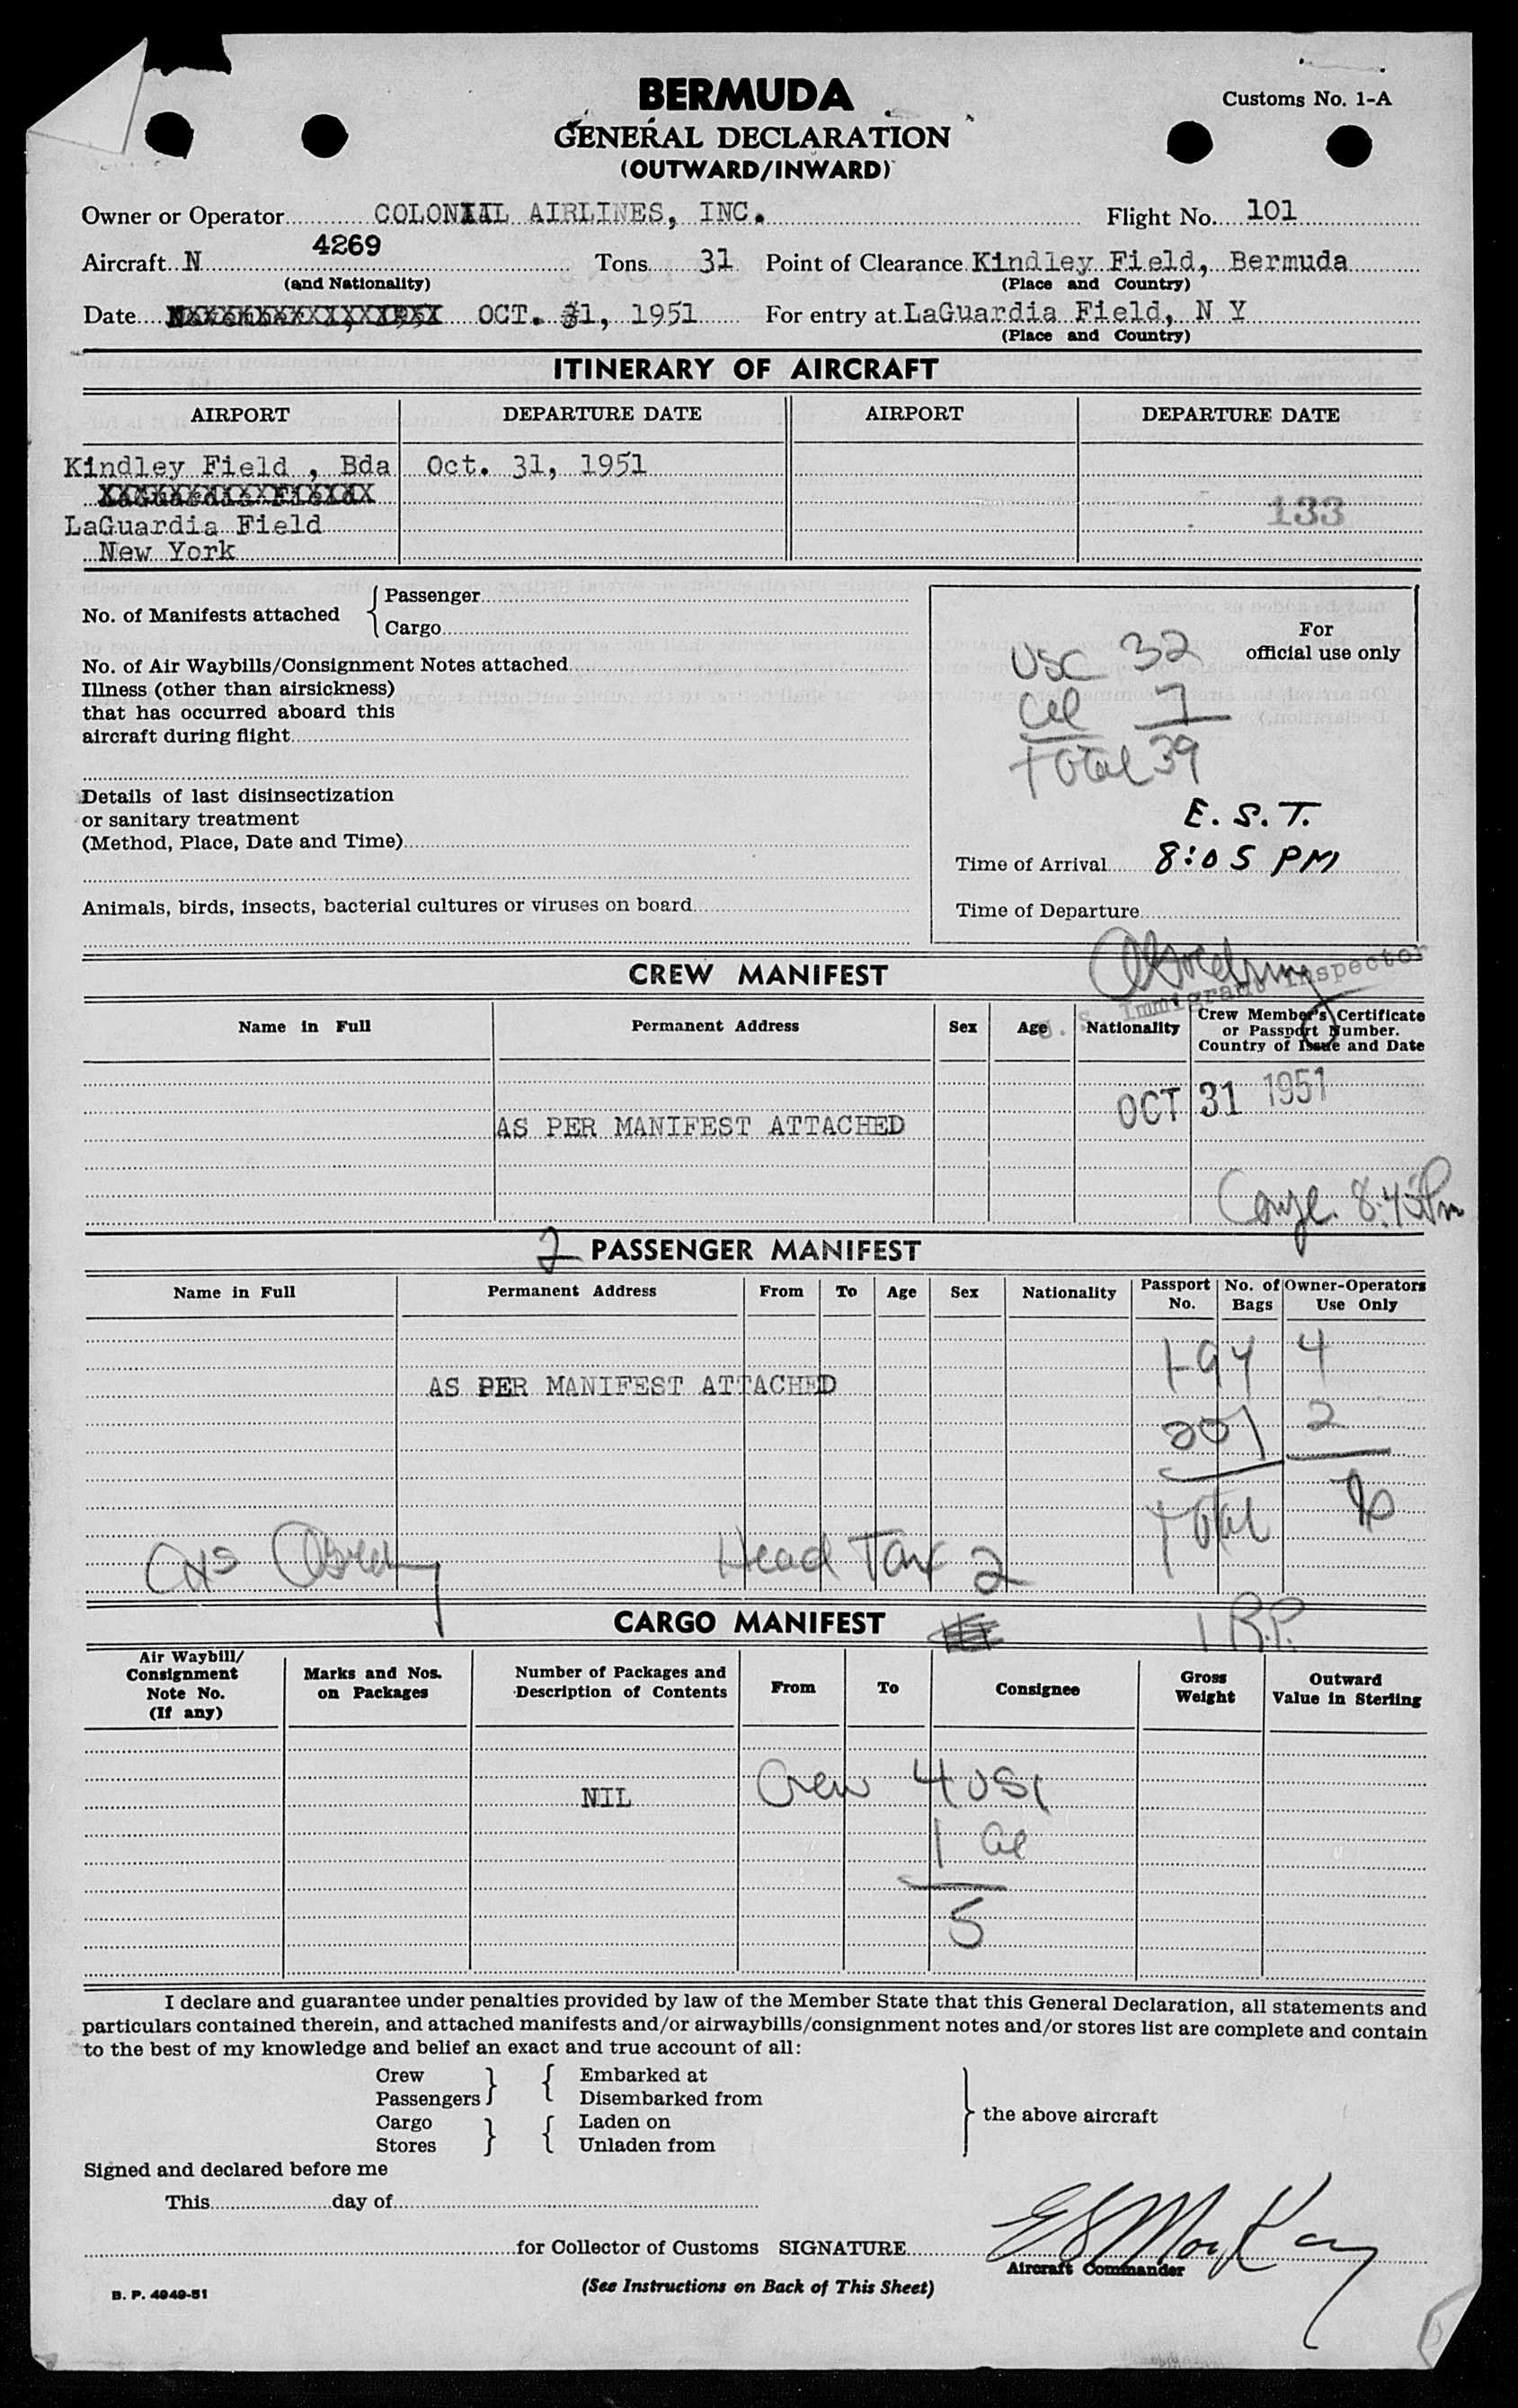 BERMUDA
Customs No. 1-A
GENERAL DECLARATION
(OUTWARD/INWARD)
Owner or Operator COLONIAL AIRLINES, INC. Flight No. 101
Aircraft N 4269 Tons 31 Point of Clearance Kindley Field, Bermuda
(and Nationality) (Place and Country)
Date OCT. 31, 1951 For entry at LaGuardia Field, N Y
(Place and Country)
ITINERARY OF AIRCRAFT
AIRPORT DEPARTURE DATE AIRPORT DEPARTURE DATE
Kindley Field , Bda Oct. 31, 1951
133
LaGuardia Field
New York
No. of Manifests attached { Passenger
Cargo
No. of Air Waybills/Consignment Notes attached
Illness (other than airsickness)
that has occurred aboard this
aircraft during flight
Details of last disinsectization
or sanitary treatment
(Method, Place, Date and Time)
Animals, birds, insects, bacterial cultures or viruses on board
For
official use only
USC 32
Cel 7
Total 39
E.S.T.
Time of Arrival 8:05 PM
Time of Departure
CREW MANIFEST
U. S. Immigrant Inspector
Name in Full Permanent Address Sex Age Nationality Crew Member's Certificate
or Passport Number.
Country of Issue and Date
OCT 31 1951
AS PER MANIFEST ATTACHED
8:45 Pm
2 PASSENGER MANIFEST
Name in Full Permanent Address From To Age Sex Nationality Passport No. No. of Bags Owner-Operators Use Only
4
AS PER MANIFEST ATTACHED
2
Total
Head Tax 2
CARGO MANIFEST
1 R.P.
Air Waybill/
Consignment
Note No.
(If any)
Marks and Nos.
on Packages
Number of Packages and
Description of Contents
From To Consignee
Gross
Weight
Outward
Value in Sterling
NIL Crew 4 USC
1 Cel
5
I declare and guarantee under penalties provided by law of the Member State that this General Declaration, all statements and
particulars contained therein, and attached manifests and/or airwaybills/consignment notes and/or stores list are complete and contain
to the best of my knowledge and belief an exact and true account of all:
Crew } { Embarked at
Passengers } { Disembarked from
Cargo } { Laden on
Stores } { Unladen from
} the above aircraft
Signed and declared before me
This day of
for Collector of Customs SIGNATURE E S MacKay
Aircraft Commander
(See Instructions on Back of This Sheet)
B. P. 4949-51